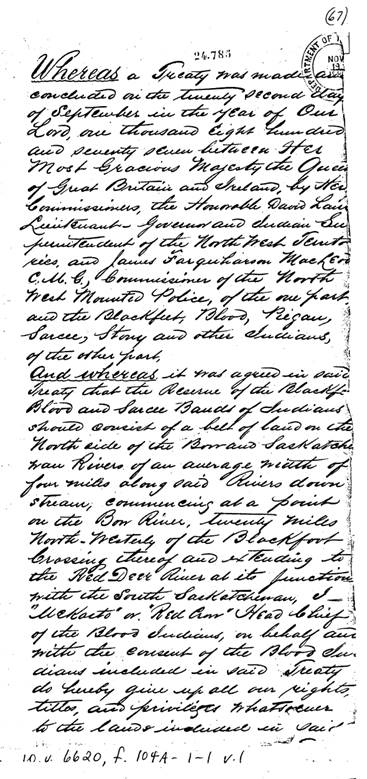 (67)
24.785
DEPARTMENT OF I
NOV
Whereas a Treaty was made and
concluded on the twenty second day
of September in the year of Our
Lord, one thousand eight hundred
and seventy seven between Her
Most Gracious Majesty the Queen
of Great Britain and Ireland, by Her
Commissioners, the Honorable David Laird
Lieutenant-Governor and Indian Su
perintendent of the North West Territo
ries, and James Farquharson MacLeod
C.M.G., Commissioner of the North
West Mounted Police, of the one part,
and the Blackfeet, Blood, Piegan,
Sarcee, Stony and other Indians,
of the other part,
And whereas it was agreed in said
Treaty that the Reserve of the Blackf-
Blood and Sarcee Bands of Indians
should consist of a belt of land on the
North side of the Bow and Saskatche
wan Rivers of an average width of
four miles along said Rivers down
stream, commencing at a point
on the Bow River, twenty miles
North-Westerly of the Blackfoot
Crossing thereof and extending to
the Red Deer River at its junction
with the South Saskatchewan, I
"Mekasto" or "Red Crow" Head Chief
of the Blood Indians, on behalf and
with the consent of the Blood In-
dians included in said Treaty
do hereby give up all our rights,
titles, and privileges whatsoever
to the lands included in said
v. 6620, f. 104A-1-1 v.1